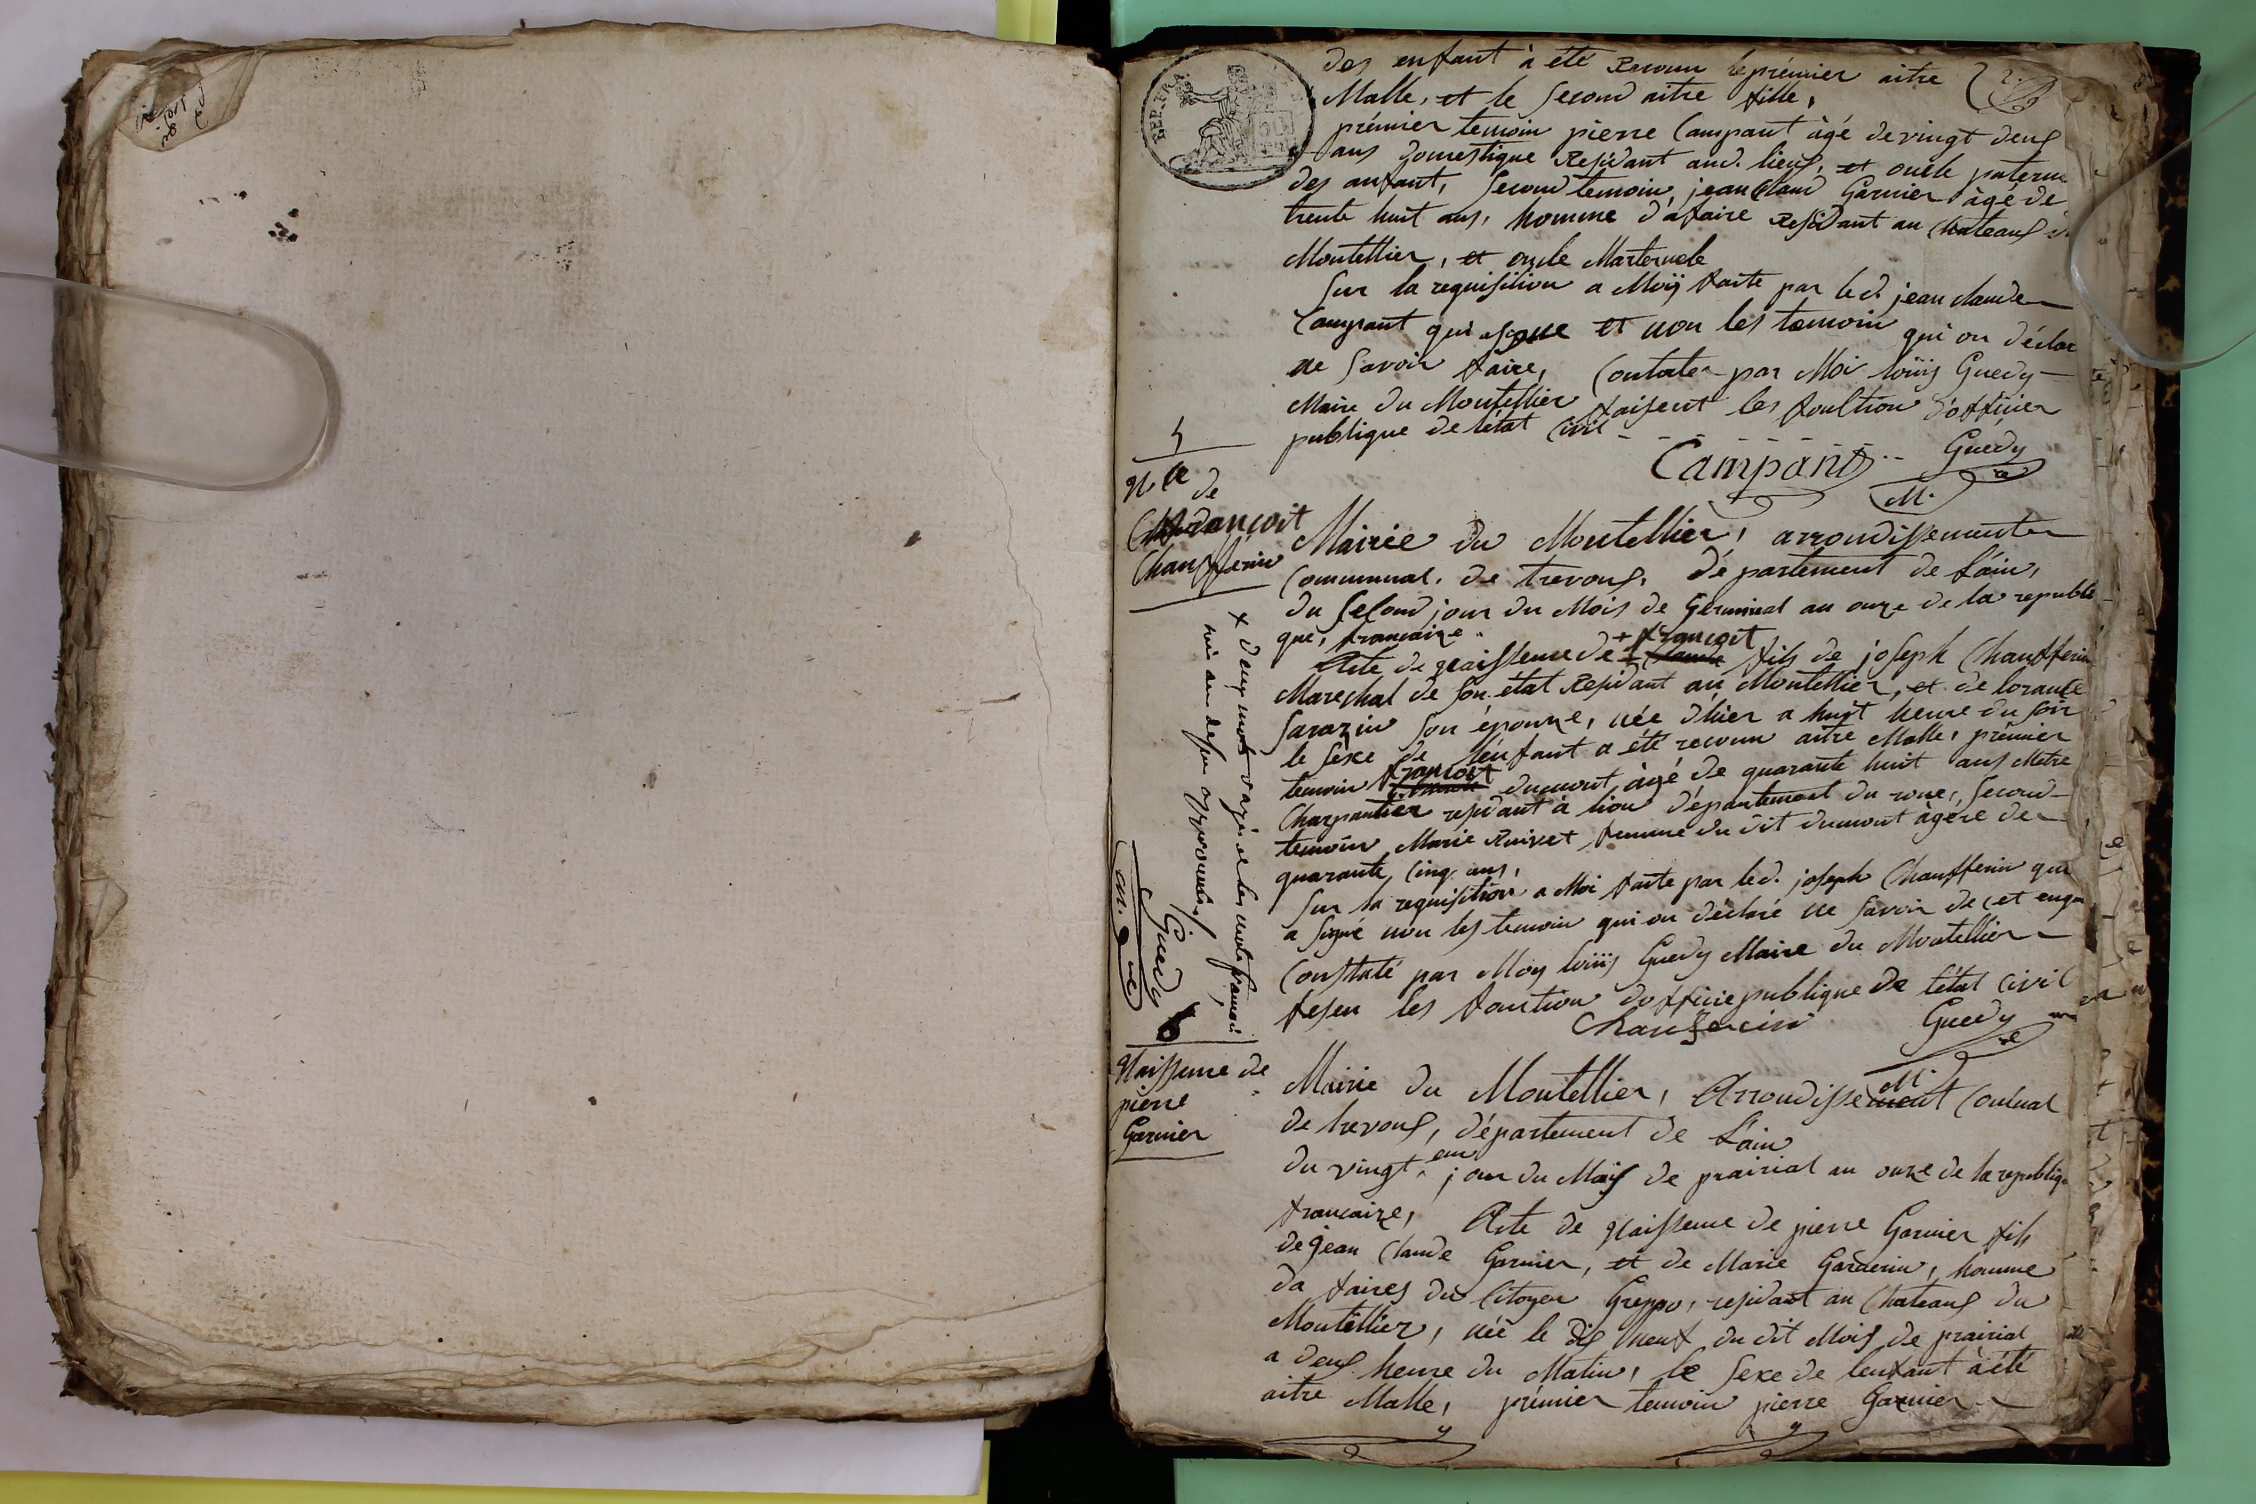 des enfant à été reconu le prémier aitre
Malle, et le second aitre fille,
prémier temoin pierre Campant àgé de vingt deux
ans domestique Residant aud. lieux, et oncle paterne
des anfant, second temoin, jean Claud Garnier àgé de
trente huit ans, homme d'afaire Residant au Chateaux
Montellier, et oncle Marternele
Sur la requisition a Moij faite par led. jean claude
Campant qui a signe et non les temoin qui on déclar
ne savoir faire, Contater par Moi loüis Guedy
Maire du Montellier faisent les fonltion d'officier
publique de létat Civil
Campant Guedy
M.
5
Nce de
françoit
Chauffenin
Mairie du Montellier, arrondissementer
Communal. de trevoux, département de Láin,
du second jour du Mois de Germinal an onze de la republi
que, francaize.
Acte de naissence de + françoit Claude fils de joseph Chauffenin
Marechal de son état Residant au Montellier, et de lorante
Sarazin son épouze, née d'hier a huit heure du soir
le sexe de l'enfant a été reconu aitre Malle, prémier
temoin françoit dumont àgé de quarante huit ans Metre
Charpantier residant à lion département du rone, second
temoin Marie Rivet femme du dit dumont àgére de
quarante cinq ans,
Sur la requisition a Moi faite par led. joseph Chauffenin qui
a signé non les temoin qui on déclaré ne savoir de cet enga
Constaté par Moy loüis Guedy Maire du Montellier
fesen les fonction dofficie publique de l'état civil
Chauffenin Guedy
M.
x deux mots rayée et les mots francoi
mis au desu approuvés
Guedy
m.
6
Naissense de
pierre
Garnier
Mairie du Montellier, Arrondissement Comunal
de trevoux, département de Láin
du vingt eun jour du Mois de prairial an onze de la republiq
francaize, Acte de Naissense de pierre Garnier fils
de jean Claude Garnier, et de Marie Garderin, homme
da faires du Citoyen Greppo, residant au Chateaux du
Montellier, née le dix neuf du dit Mois de prairial
a deux heure du Matin, le sexe de lenfant à été
aitre Malle, prémier temoin pierre Garnier